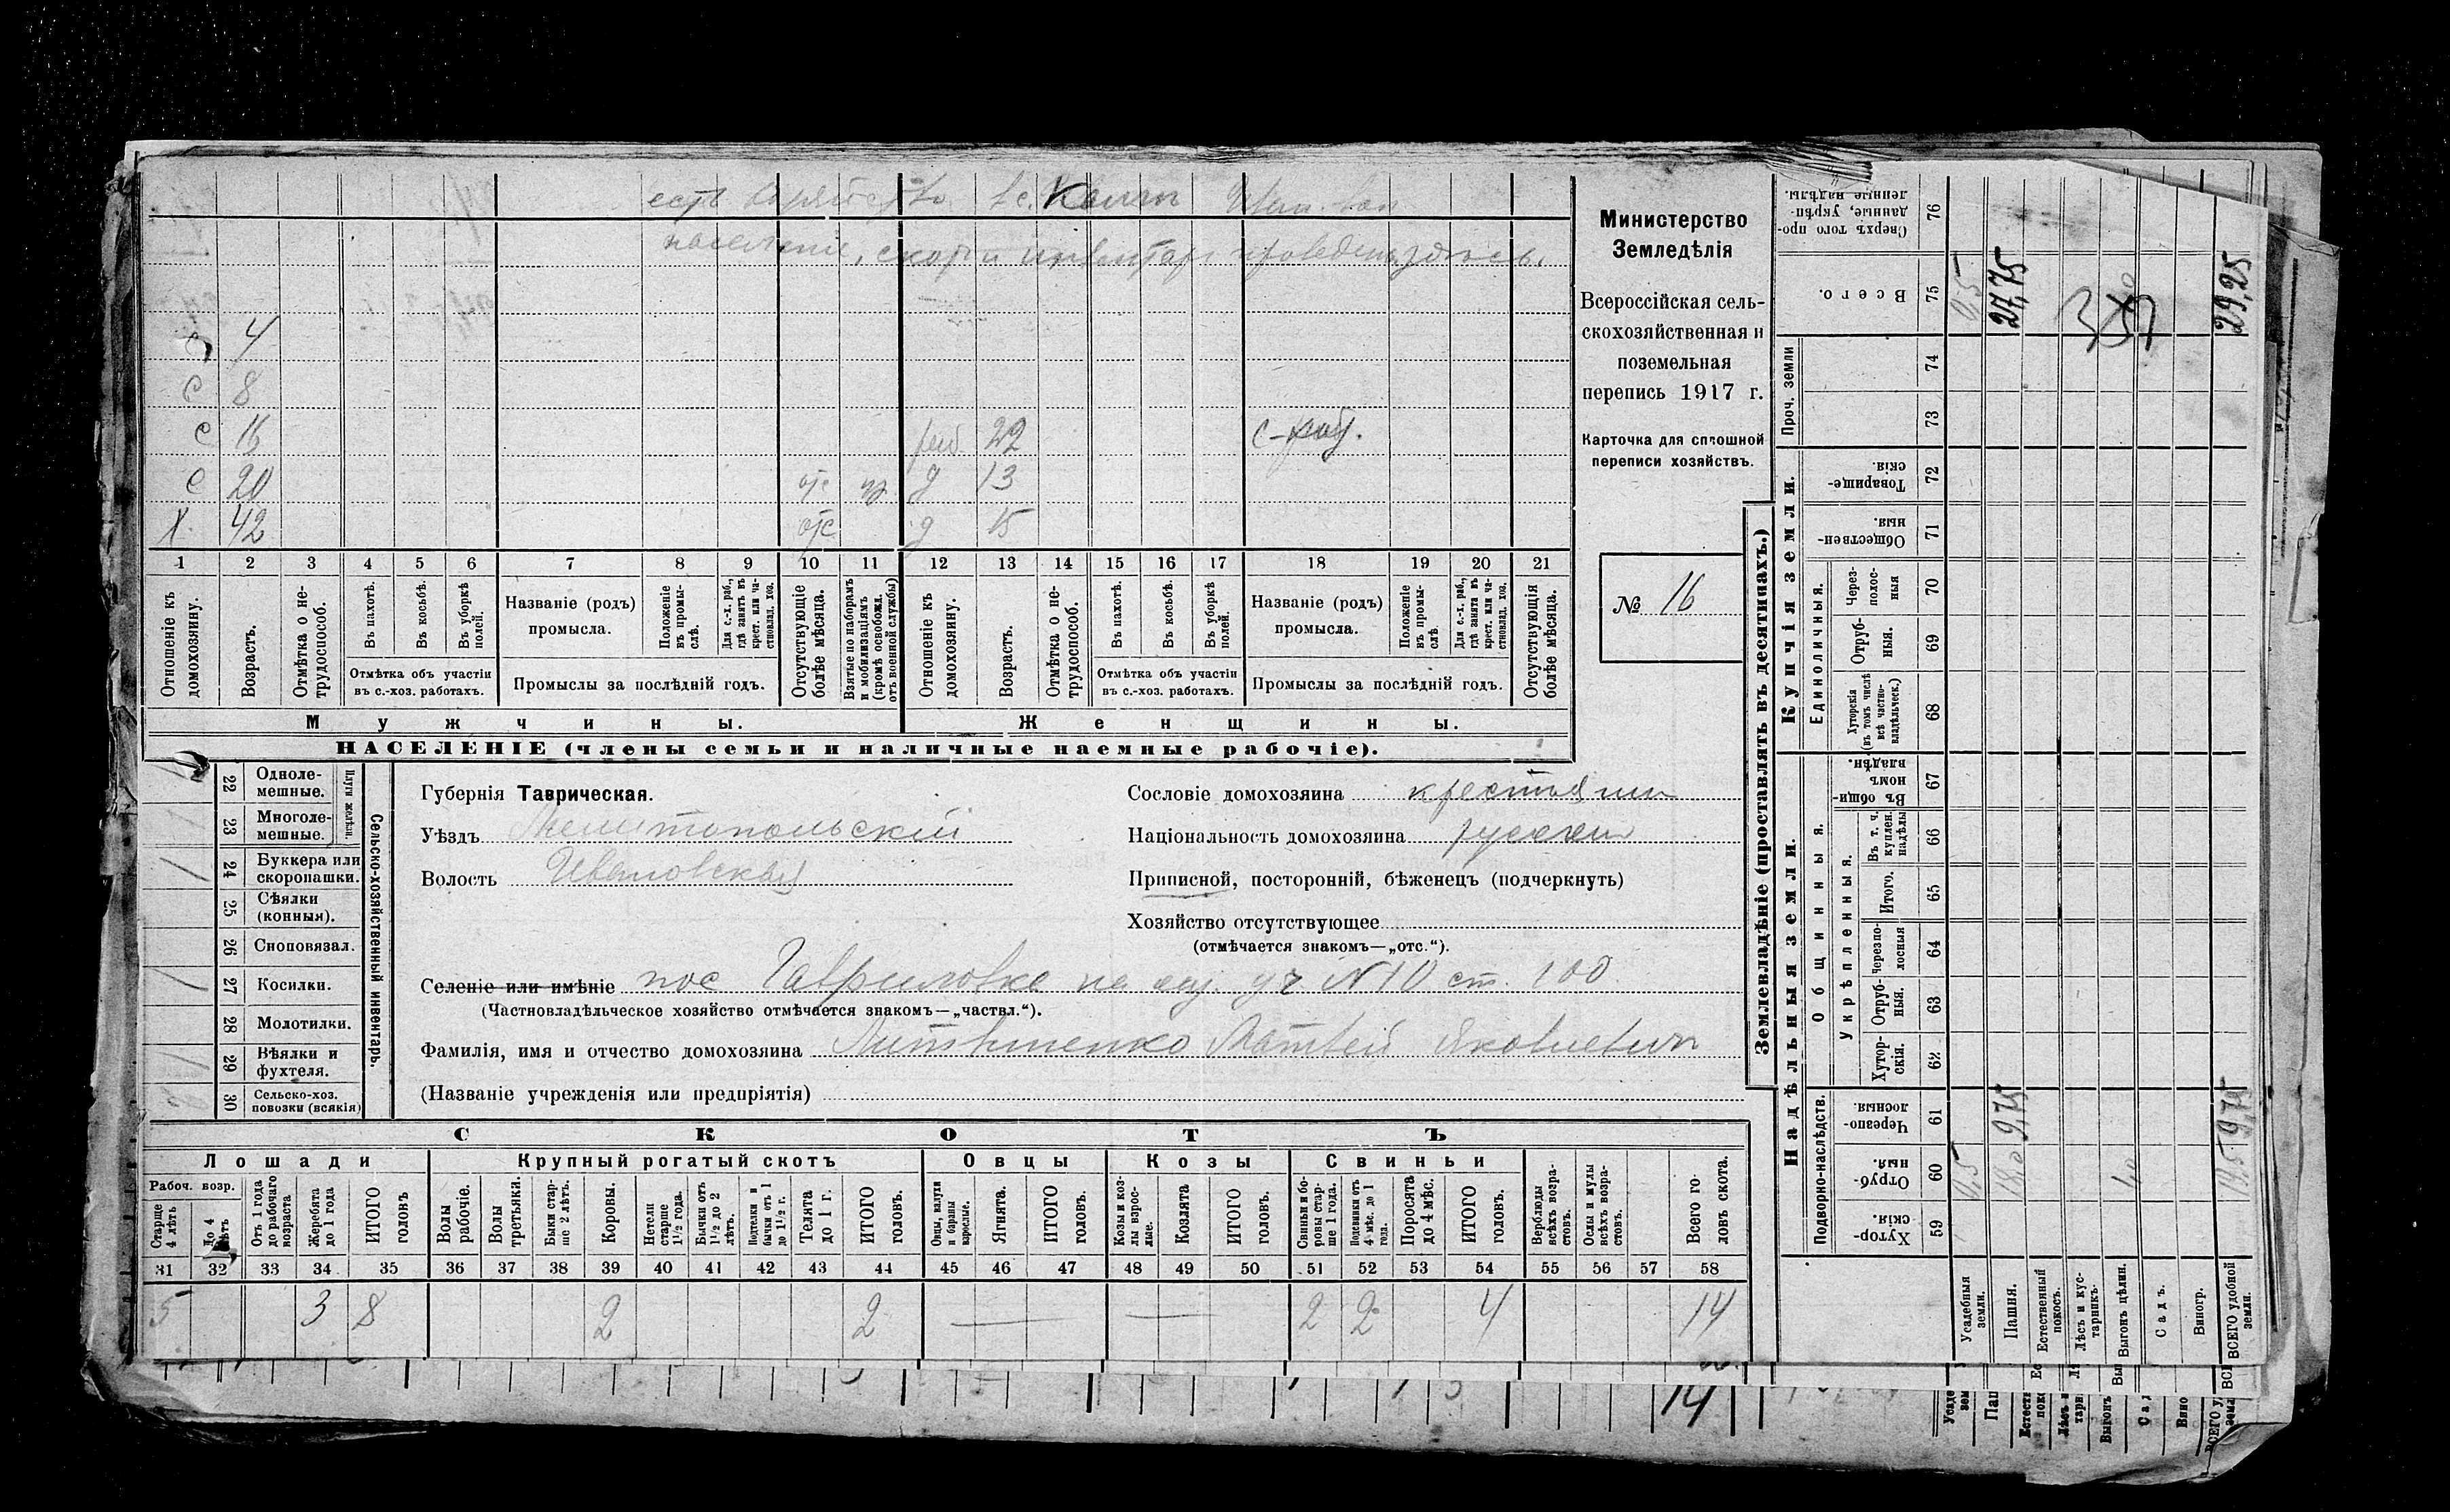 Министерство
Земледѣлія
Всероссійская сель-
скохозяйственная и
поземельная
перепись 1917 г.
Карточка для сплошной
переписи хозяйствъ.
№ 16
населеніе, скот и инвентарь здѣсь.
4
с 8
с 16 22
с 20 отс д 13
х. 42 отс д 15
1 2 3 4 5 6 7 8 9 10 11 12 13 14 15 16 17 18 19 20 21
Отношеніе къ домохозяину.
Возрастъ.
Отмѣтка о не-трудоспособ.
Въ пахотѣ.
Въ косьбѣ.
Въ уборкѣ полей.
Отмѣтка объ участіи въ с.-хоз. работахъ.
Названіе (родъ) промысла.
Положеніе въ промы-слѣ.
Для с.-х. раб., гдѣ занятъ въ крест. или ча-стновлад. хоз.
Промыслы за послѣдній годъ.
Отсутствующіе болѣе мѣсяца.
Взятые по наборамъ и мобилизаціямъ (кромѣ освобожд. отъ военной службы)
Отношеніе къ домохозяину.
Возрастъ.
Отмѣтка о не-трудоспособ.
Въ пахотѣ.
Въ косьбѣ.
Въ уборкѣ полей.
Отмѣтка объ участіи въ с.-хоз. работахъ.
Названіе (родъ) промысла.
Положеніе въ промы-слѣ
Для с.-х. раб., гдѣ занята въ крест. или ча-стновлад. хоз.
Промыслы за послѣдній годъ.
Отсутствующія болѣе мѣсяца.
Мужчины. Женщины.
НАСЕЛЕНІЕ (члены семьи и наличные наемные рабочіе).
22 Одноле-мешные.
23 Многоле-мешные.
Плуги желѣзн.
24 Буккера или скоропашки.
25 Сѣялки (конныя).
26 Сноповязал.
27 Косилки.
28 Молотилки.
29 Вѣялки и фухтеля.
30 Сельско-хоз. повозки (всякія)
Сельско-хозяйственный инвентарь.
Губернія Таврическая.
Уѣздъ Мелитопольскій
Волость Ивановская
Сословіе домохозяина крестьянин
Національность домохозяина русскій
Приписной, посторонній, бѣженецъ (подчеркнуть)
Хозяйство отсутствующее
(отмѣчается знакомъ—„отс.“).
Селеніе или имѣніе пос Гавриловка на уч N10 ст. 100
(Частновладѣльческое хозяйство отмѣчается знакомъ—„частвл.“).
Фамилія, имя и отчество домохозяина Литвиненко Матвей Яковлевич
(Названіе учрежденія или предпріятія)
СКОТЪ
Лошади Крупный рогатый скотъ Овцы Козы Свиньи
Рабоч. возр.
Старше 4 лѣтъ
До 4 лѣтъ
Отъ 1 года до рабочаго возраста
Жеребята до 1 года
ИТОГО головъ
Волы рабочіе.
Волы третьяки.
Быки стар-ше 2 лѣтъ.
Коровы.
Нетели старше 1½ года.
Бычки отъ 1½ до 2 лѣтъ.
Подтелки и бычки отъ 1 до 1½ г.
Телята до 1 г.
ИТОГО головъ.
Овцы, валухи и бараны взрослые.
Ягнята.
ИТОГО головъ.
Козы и коз-лы взрос-лые.
Козлята
ИТОГО головъ.
Свиньи и бо-ровы стар-ше 1 года.
Подсвинки отъ 4 мѣс. до 1 года.
Поросята до 4 мѣс.
ИТОГО головъ.
Верблюды всѣхъ возра-стовъ.
Ослы и мулы всѣхъ возра-стовъ.
Всего го-ловъ скота.
31 32 33 34 35 36 37 38 39 40 41 42 43 44 45 46 47 48 49 50 51 52 53 54 55 56 57 58
5 3 8 2 2 — — 2 2 4 14
Землевладѣніе (проставлять въ десятинахъ.)
Надѣльныя земли. Купчія земли. Проч. земли
Подворно-наслѣдств.
Общинныя.
Укрѣпленныя.
Единоличныя.
Хутор-скія. 59
Отруб-ныя. 60
Черезпо-лосныя. 61
Хутор-скія. 62
Отруб-ныя. 63
Черезпо-лосныя 64
Итого. 65
Въ т. ч. куплен. надѣлы 66
Въ общи-номъ владѣн. 67
Хуторскія (въ томъ числѣ всѣ частно-владѣльческ.) 68
Отруб-ныя. 69
Через-полос-ныя 70
Обществен-ныя. 71
Товарище-скія. 72
73
74
Всего. 75
Сверхъ того про-данные, укрѣп-ленные надѣлы. 76
Усадебныя земли. 0,5 0,5
Пашня. 18,0 9,75 27,75
Естественный покосъ.
Лѣсъ и кус-тарникъ.
Выгонъ цѣлин. 1,0
Садъ.
Виногр.
ВСЕГО удобной земли. 19,5 9,75 29,25
14